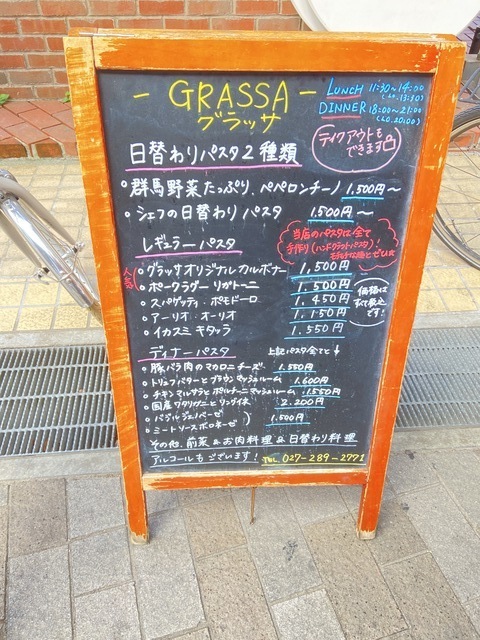 - GRASSA -
グラッサ
LUNCH 11:30〜14:00
(L.O. 13:30)
DINNER 18:00〜21:00
(L.O. 20:00)
テイクアウトも
できます
日替わりパスタ2種類
○群馬野菜たっぷり ペペロンチーノ 1,500円〜
○シェフの日替わり パスタ 1,500円〜
当店のパスタは全て
手作り(ハンドクラフトパスタ)!
レギュラーパスタ
人気
○グラッサオリジナルカルボナーラ 1,500円
○ポークラグー リガトーニ 1,500円
○スパゲッティ ポモドーロ 1,450円
○アーリオ オーリオ 1,150円
○イカスミ キタッラ 1,550円
価格は
すべて税込
です!
ディナーパスタ 上記パスタ全てと↓
○豚バラ肉のマカロニチーズ 1,550円
○トリュフバターとブラウンマッシュルーム 1,600円
○チキンマルサラとポルチーニマッシュルーム 1,550円
○国産ワタリガニとリングイネ 2,200円
○バジルジェノベーゼ
○ミートソースボロネーゼ 1,500円
その他、前菜&お肉料理&日替わり料理
アルコールもございます! TEL. 027-289-2771